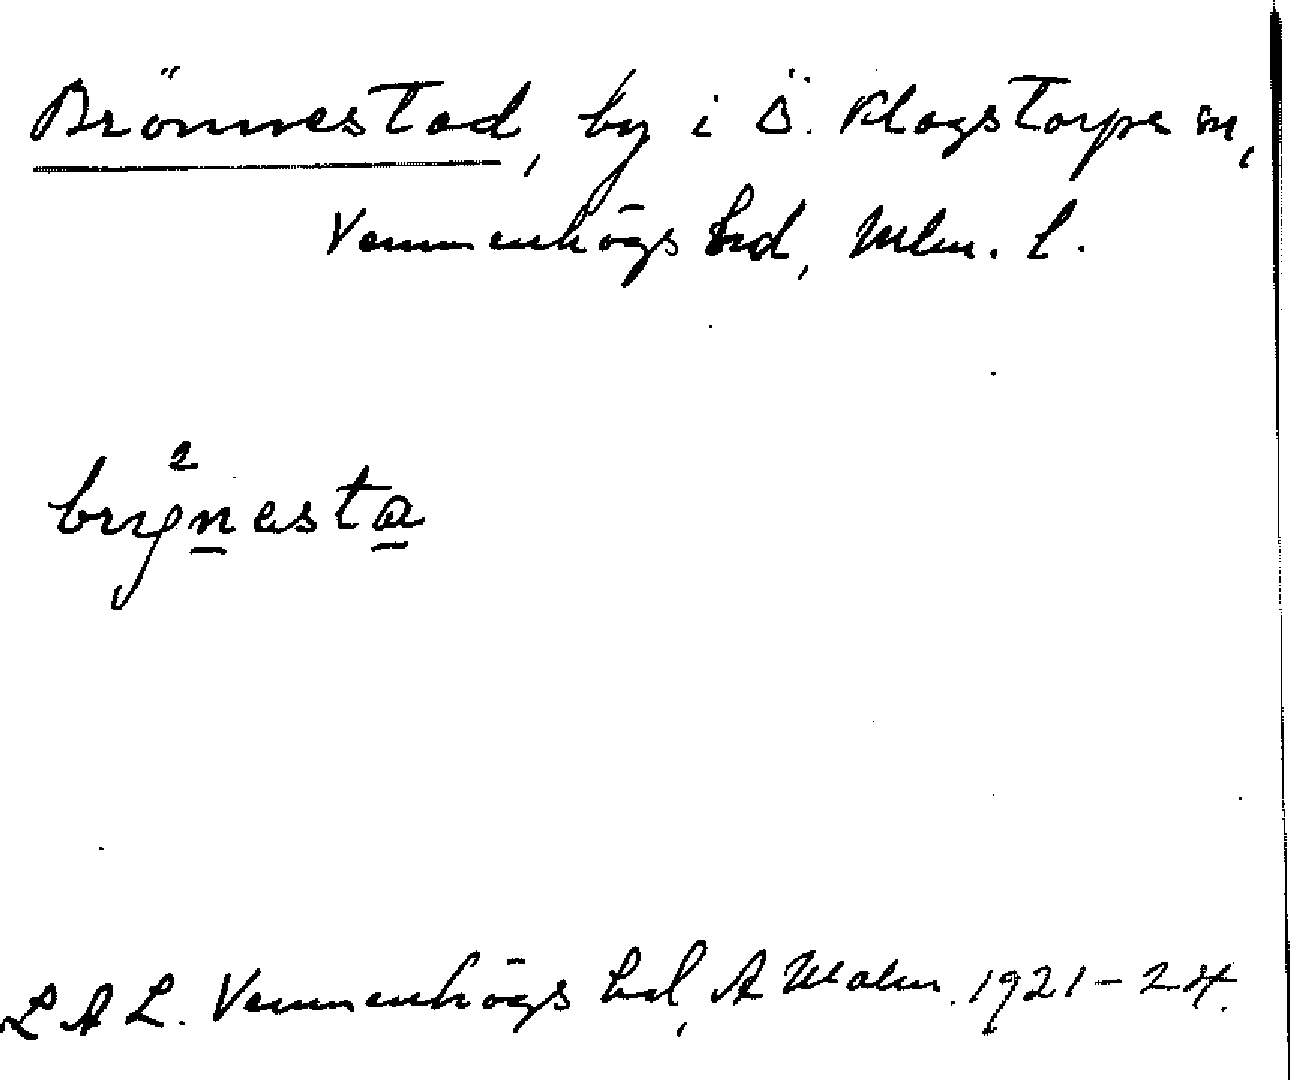 Brönnestad, by i Ö. Klagstorps sn,
Vemmenhögs hd, Mlm. l.
brynesta
L A L. Vemmenhögs hd, A Malm. 1921-24.